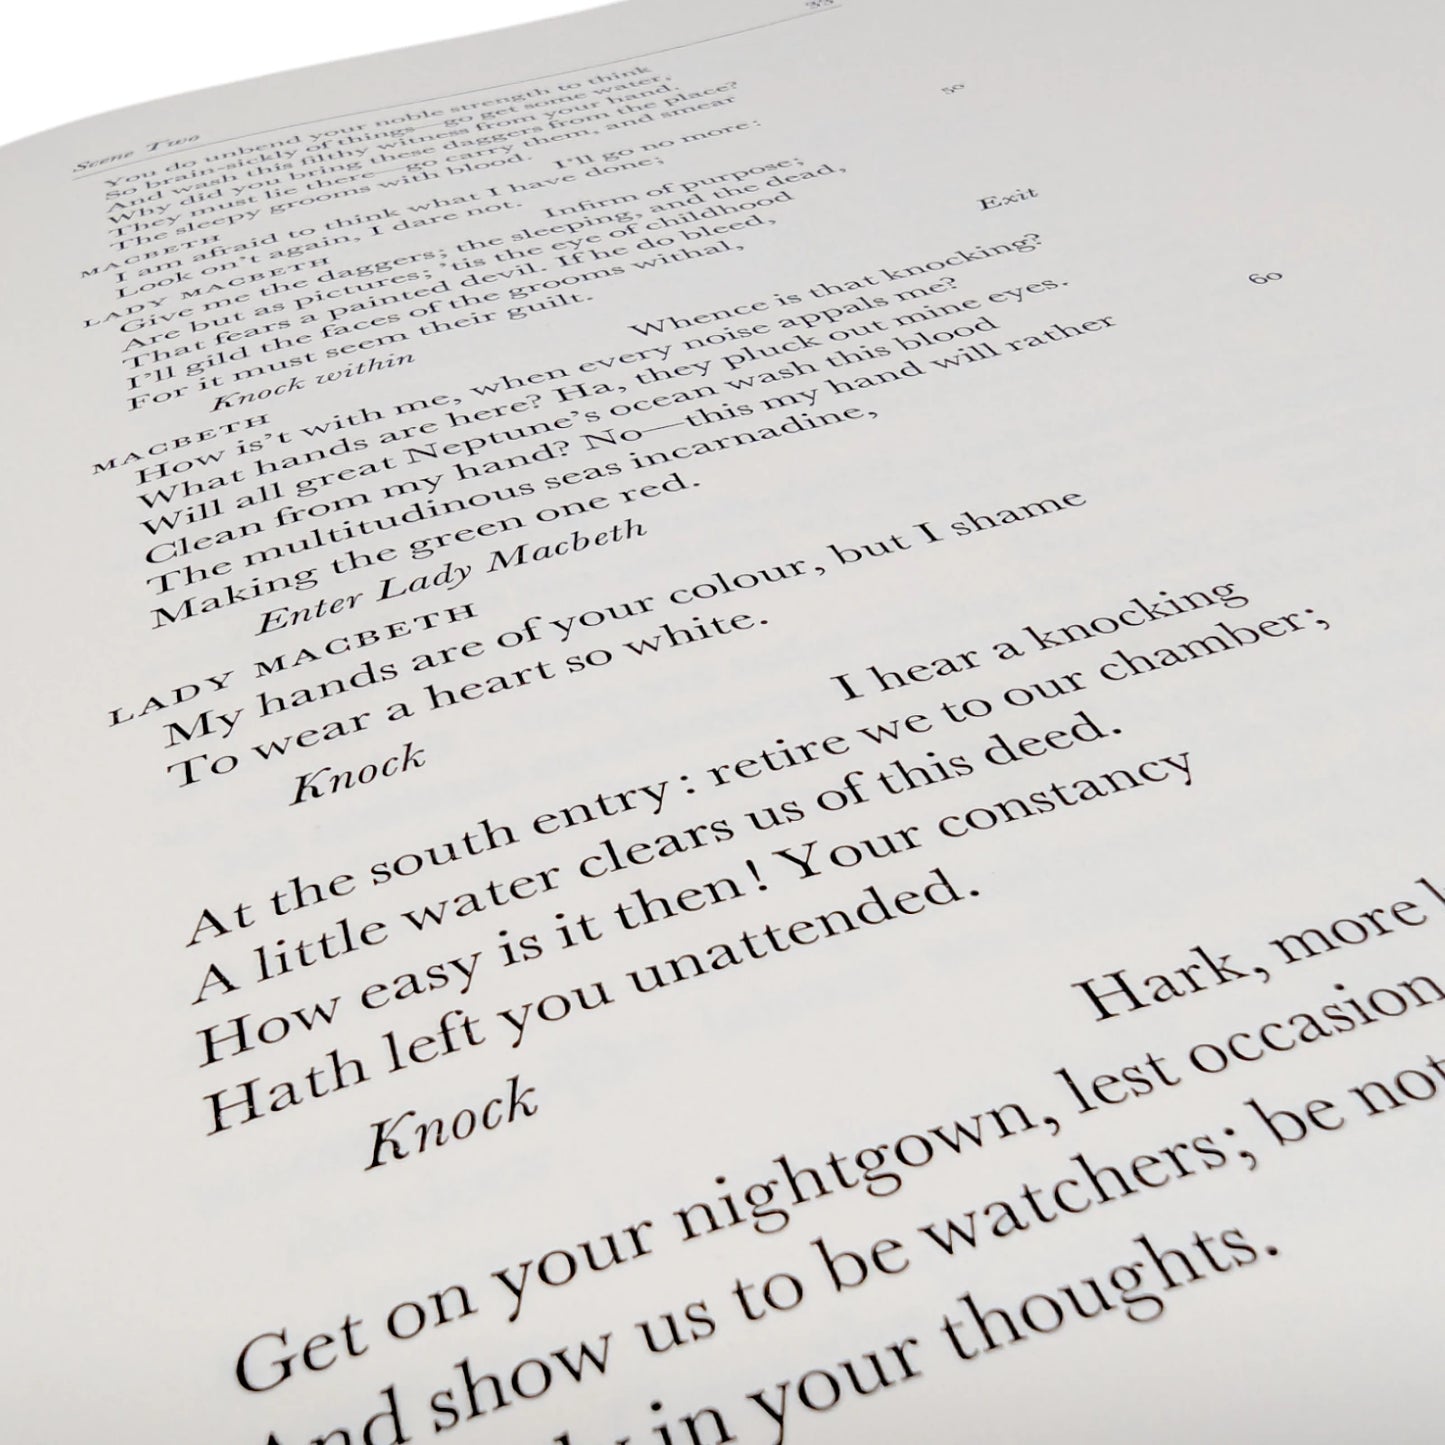 Scene Two 33
You do unbend your noble strength to think
So brain-sickly of things—go get some water,
And wash this filthy witness from your hand.
Why did you bring these daggers from the place?
They must lie there—go carry them, and smear
The sleepy grooms with blood.
MACBETH I'll go no more:
I am afraid to think what I have done;
Look on't again, I dare not. 50
LADY MACBETH Infirm of purpose;
Give me the daggers; the sleeping, and the dead,
Are but as pictures; 'tis the eye of childhood
That fears a painted devil. If he do bleed,
I'll gild the faces of the grooms withal,
For it must seem their guilt. Exit
Knock within
MACBETH Whence is that knocking?
How is't with me, when every noise appals me?
What hands are here? Ha, they pluck out mine eyes.
Will all great Neptune's ocean wash this blood 60
Clean from my hand? No—this my hand will rather
The multitudinous seas incarnadine,
Making the green one red.
Enter Lady Macbeth
LADY MACBETH
My hands are of your colour, but I shame
To wear a heart so white.
Knock
I hear a knocking
At the south entry: retire we to our chamber;
A little water clears us of this deed.
How easy is it then! Your constancy
Hath left you unattended.
Knock
Hark, more
Get on your nightgown, lest occasion
And show us to be watchers; be not
in your thoughts.